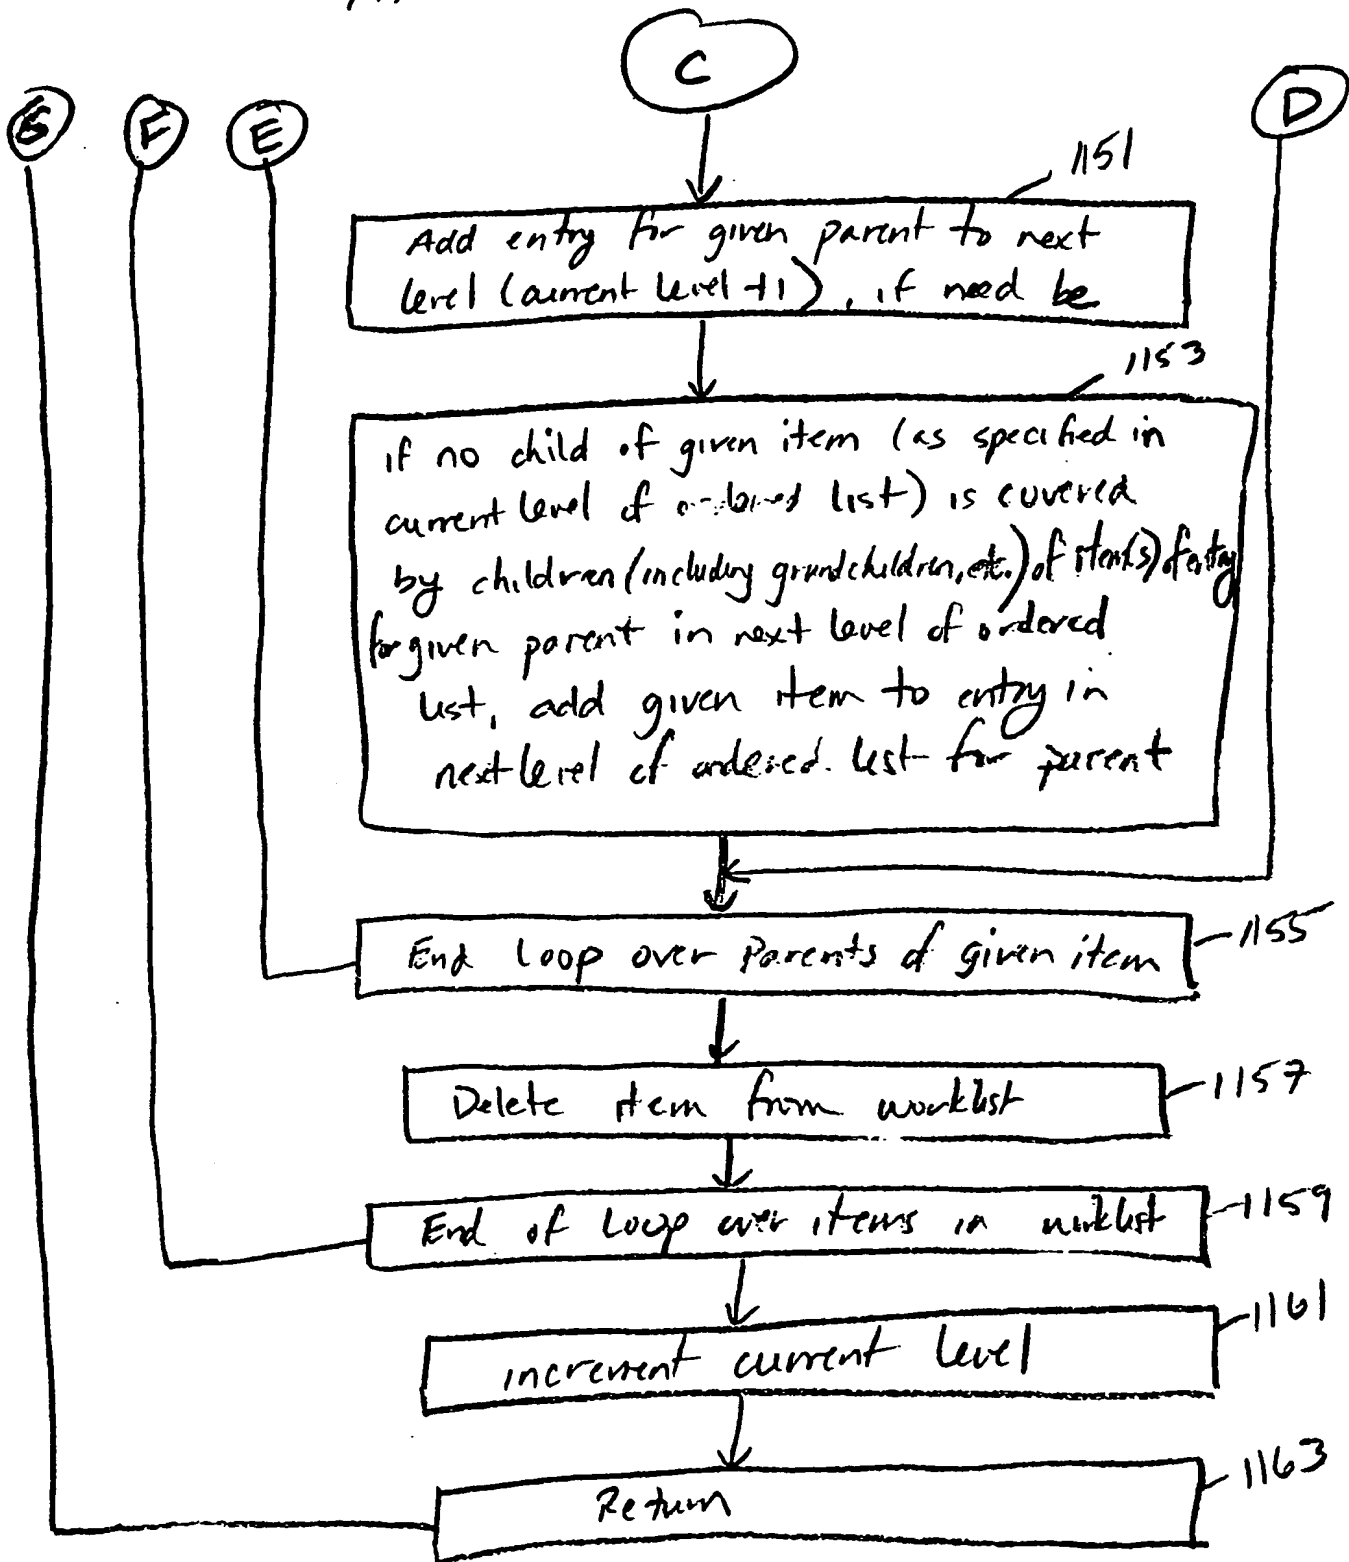 C
G
F
E
D
1151
Add entry for given parent to next
level (current level +1), if need be
1153
if no child of given item (as specified in
current level of ordered list) is covered
by children (including grandchildren, etc.) of item(s) of entry
for given parent in next level of ordered
list, add given item to entry in
next level of ordered. list for parent
End Loop over Parents of given item
1155
Delete item from worklist
1157
End of Loop over items in worklist
1159
increment current level
1161
Return
1163